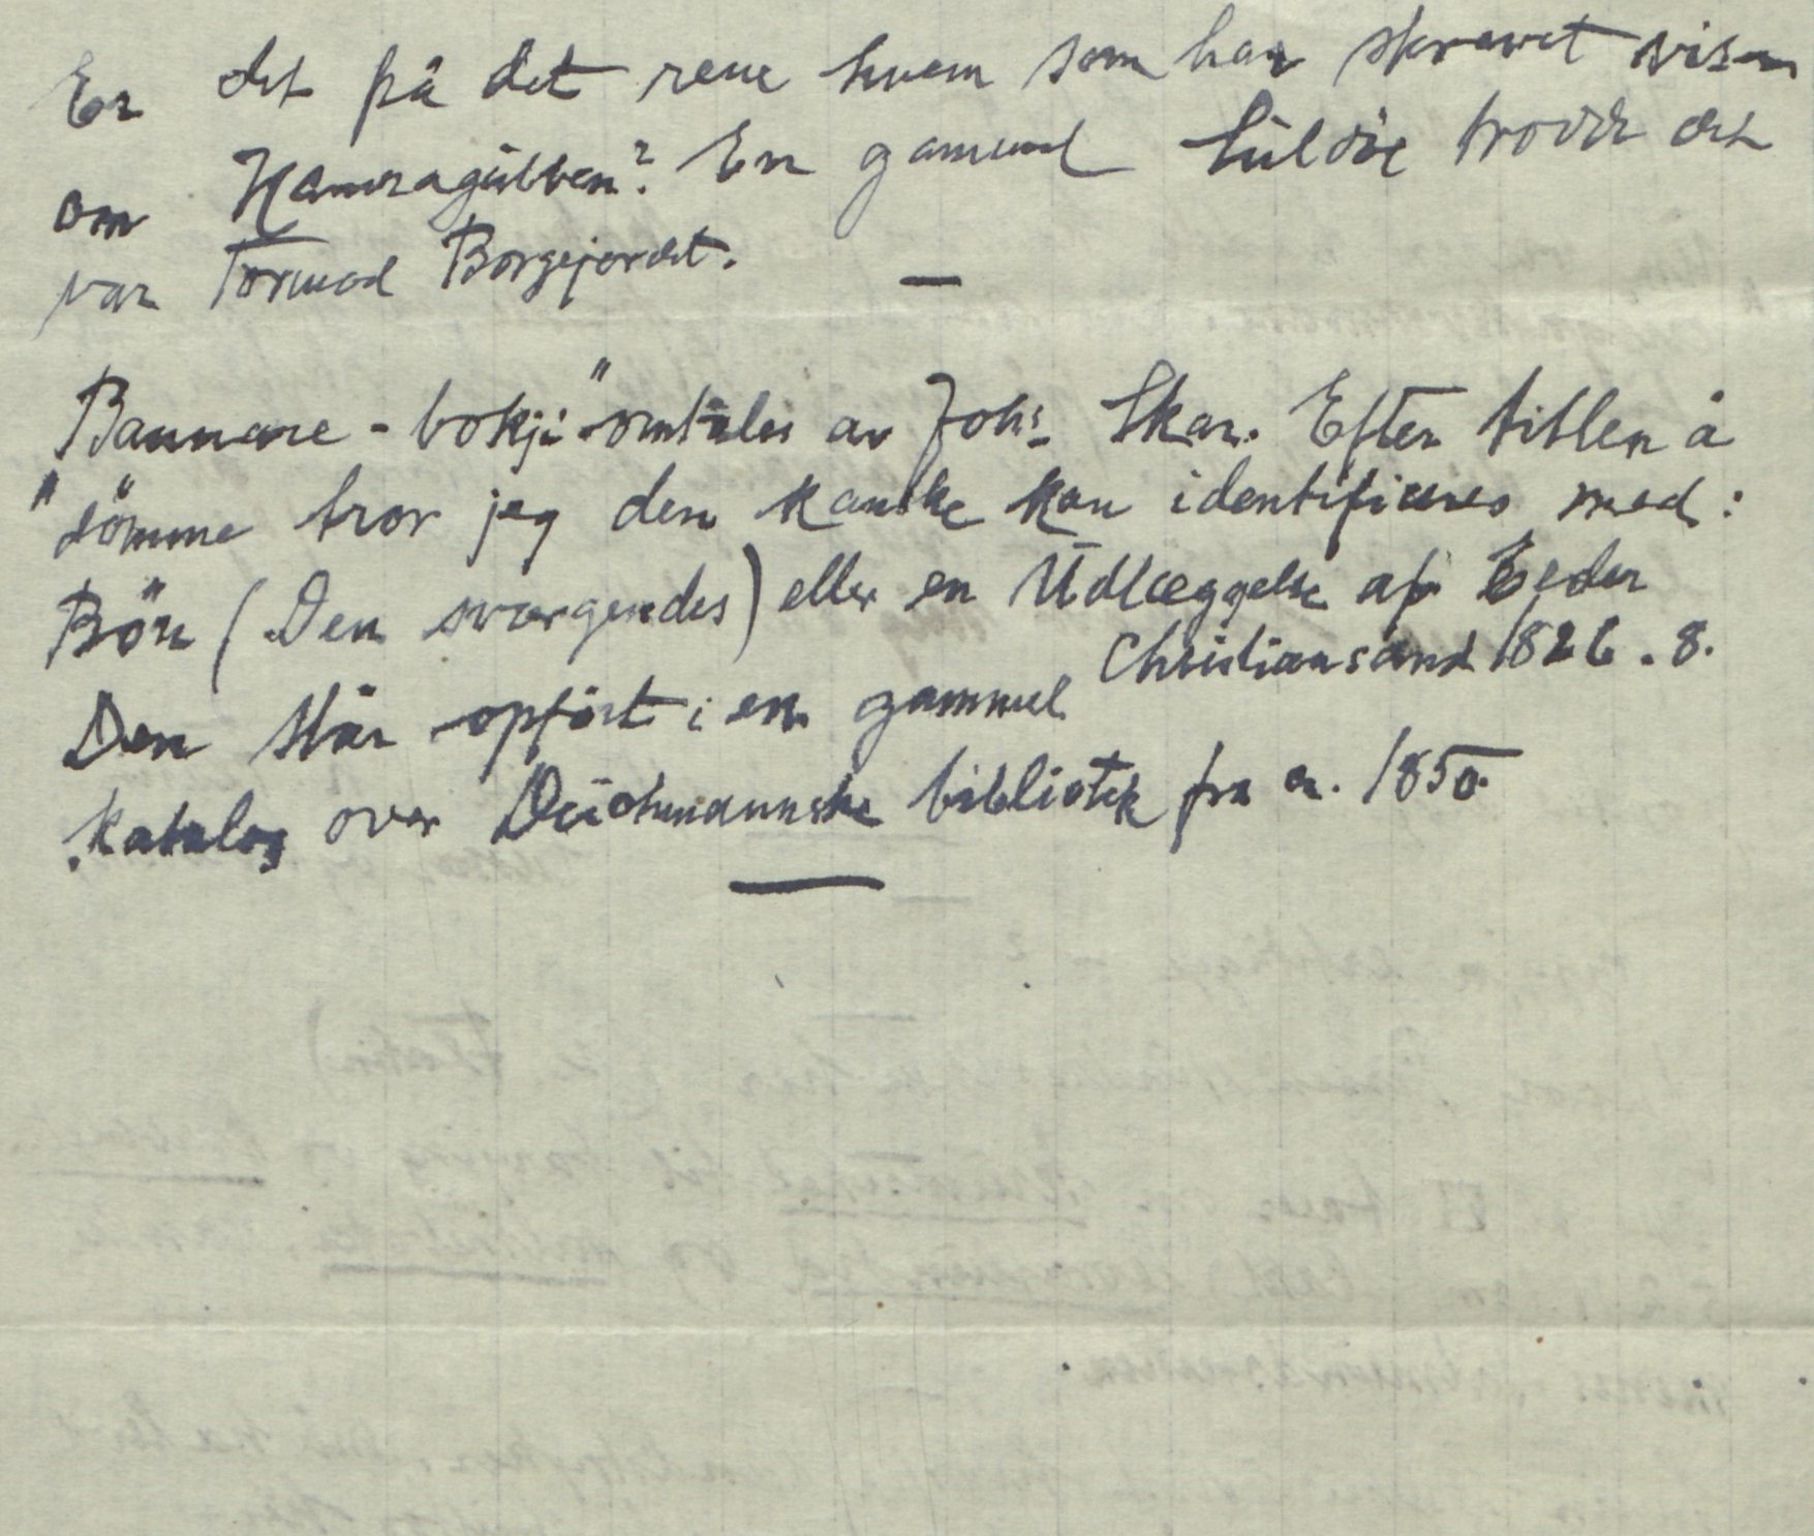 Er det på det rene hvem som har skrevet visen
om Hamragubben? En gammel trodde det
var Tormod Borgejordet.
—
"Bannare-bokji" omtales av Johs. Skar. Efter titlen å
dömme tror jeg den kanske kan identificeres med:
Bön (Den sværgendes) eller en Udlæggelse af Eeder
Christiansand 1826. 8.
Den står opfört i en gammel
katalog over Deichmannske bibliotek fra a. 1850.